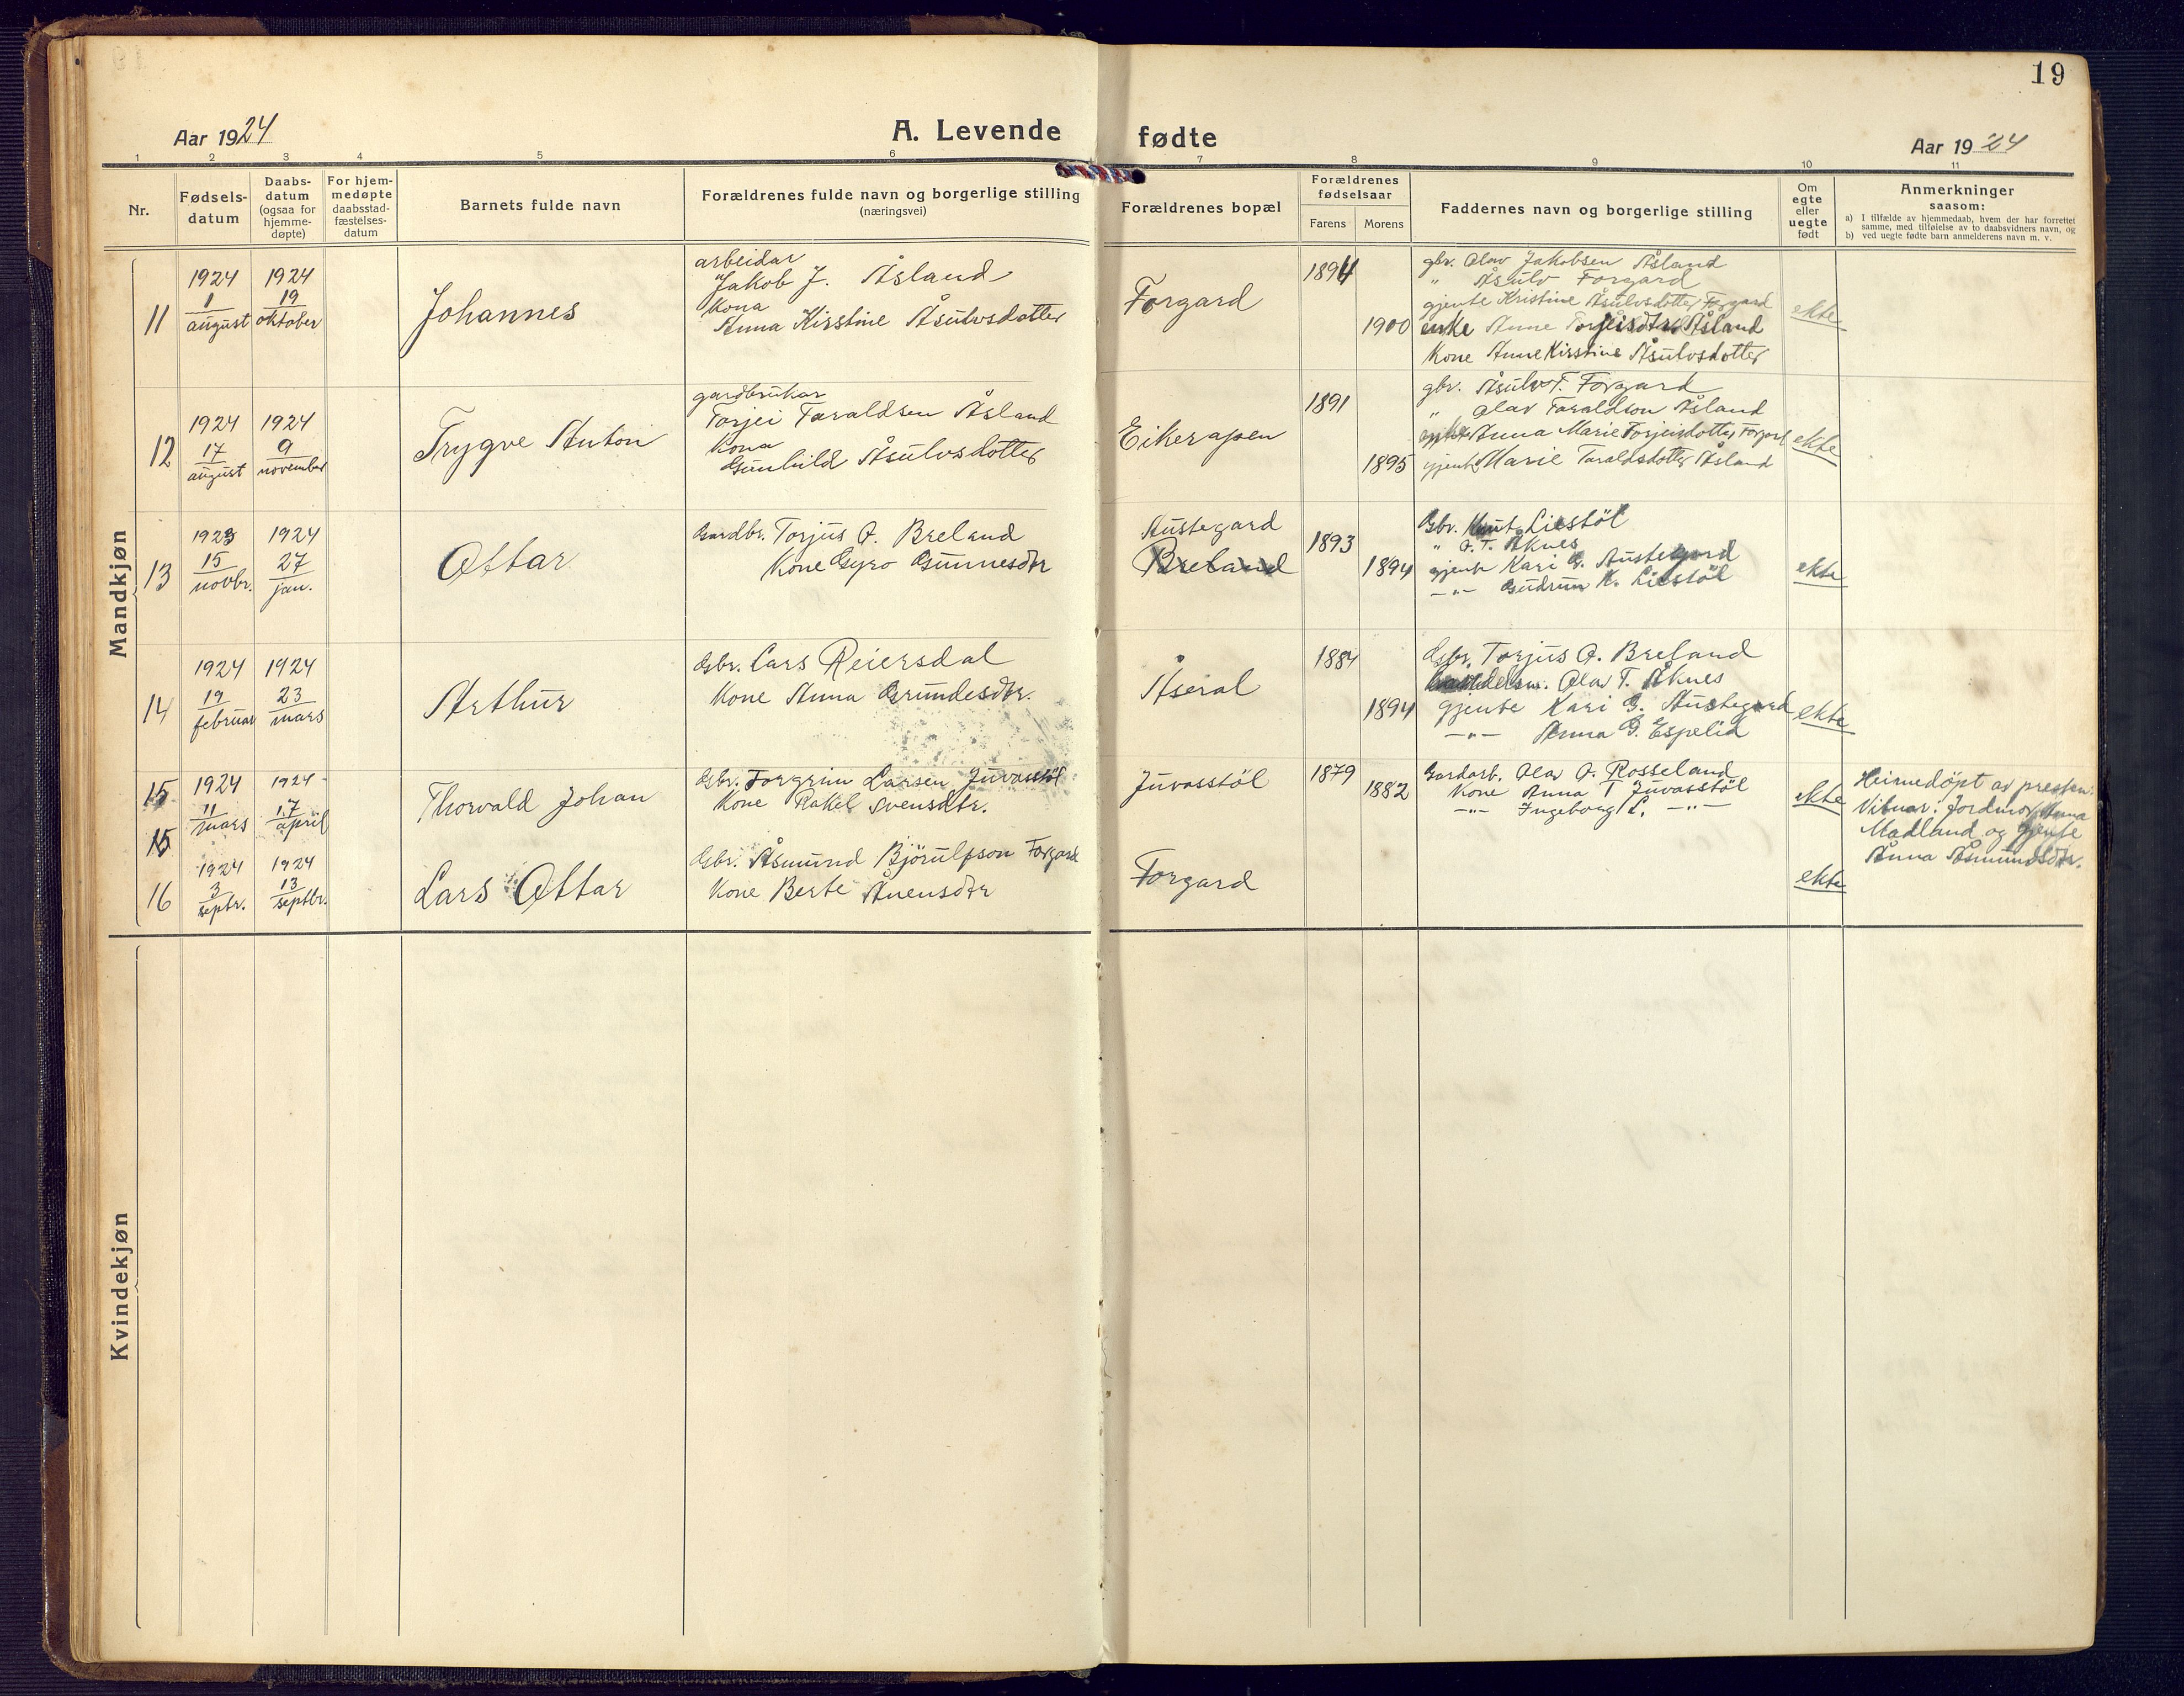 19
Aar 1924
A. Levende fødte
Aar 1924
1 2 3 4 5 6 7 8 9 10 11
Nr.
Fødsels-
datum
Daabs-
datum
(ogsaa for
hjemme-
døpte)
For hjem-
medøpte
daabsstad-
fæstelses-
datum
Barnets fulde navn
Forældrenes fulde navn og borgerlige stilling
(næringsvei)
Forældrenes bopæl
Forældrenes
fødselsaar
Farens
Morens
Faddernes navn og borgerlige stilling
Om
egte
eller
uegte
født
Anmerkninger
saasom:
a) I tilfælde av hjemmedaab, hvem der har forrettet
samme, med tilføielse av to daabsvidners navn, og
b) ved uegte fødte barn anmelderens navn m. v.
Mandkjøn
11
1924
1
august
1924
19
oktober
Johannes
arbeidar
Jakob J. Åsland
Kona
Anna Kirstine Åsulvsdotter
Forgard
1894
1900
gbr. Olav Jakobsen Åsland
" Åsulv Forgard
gjente Kristine Åsulvsdotter Forgard
enke Anne Torjeisdtr. Åsland
Kone Anne Kirstine Åsulvsdotter
ekte
12
1924
17
august
1924
9
november
Trygve Anton
gardbrukar
Torjei Taraldsen Åsland
Kona
Gunhild Åsulvsdotter
Eikerapen
1891
1895
gbr. Åsulv T. Forgard
" Olav Taraldson Åsland
Anna Marie Torjeisdotter Forgard
gjente Marie Taraldsdotter Åsland
ekte
13
1923
15
novbr.
1924
27
jan.
Ottar
Gardbr. Torjus O. Breland
Kone Gyro Gunnesdtr
Austegard
Breland
1893
1894
Gbr. Knut Liestöl
" O. T. Åknes
gjente Kari G. Austegard
-"- Gudrun K. Liestöl
ekte
14
1924
19
februar
1924
23
mars
Arthur
Gbr. Lars Reiersdal
Kone Anna Grundesdtr.
Åseral
1884
1894
Gbr. Torjus O. Breland
Olav T. Åknes
Gjente Kari G. Austegard
-"- Anna G. Espelid
ekte
15
1924
11
mars
1924
17
april
Thorvald Johan
Gbr. Torgrim Larsen Juvasstöl
Kone Rakel Svensdtr.
Juvasstöl
1879
1882
Gardarb. Olav O. Rosseland
Kone Anna T Juvasstöl
-"- Ingeborg L. -"-
ekte
Heimedöpt av presten.
Vitnar: Jordmor Anna
Madland og Gjente
Anna Åsmundsdtr.
15
16
1924
3
septr.
1924
13
septbr.
Lars Ottar
Gbr. Åsmund Björulfson Forgard
Kone Berte Ånensdtr
Forgard
ekte
Kvindekjøn